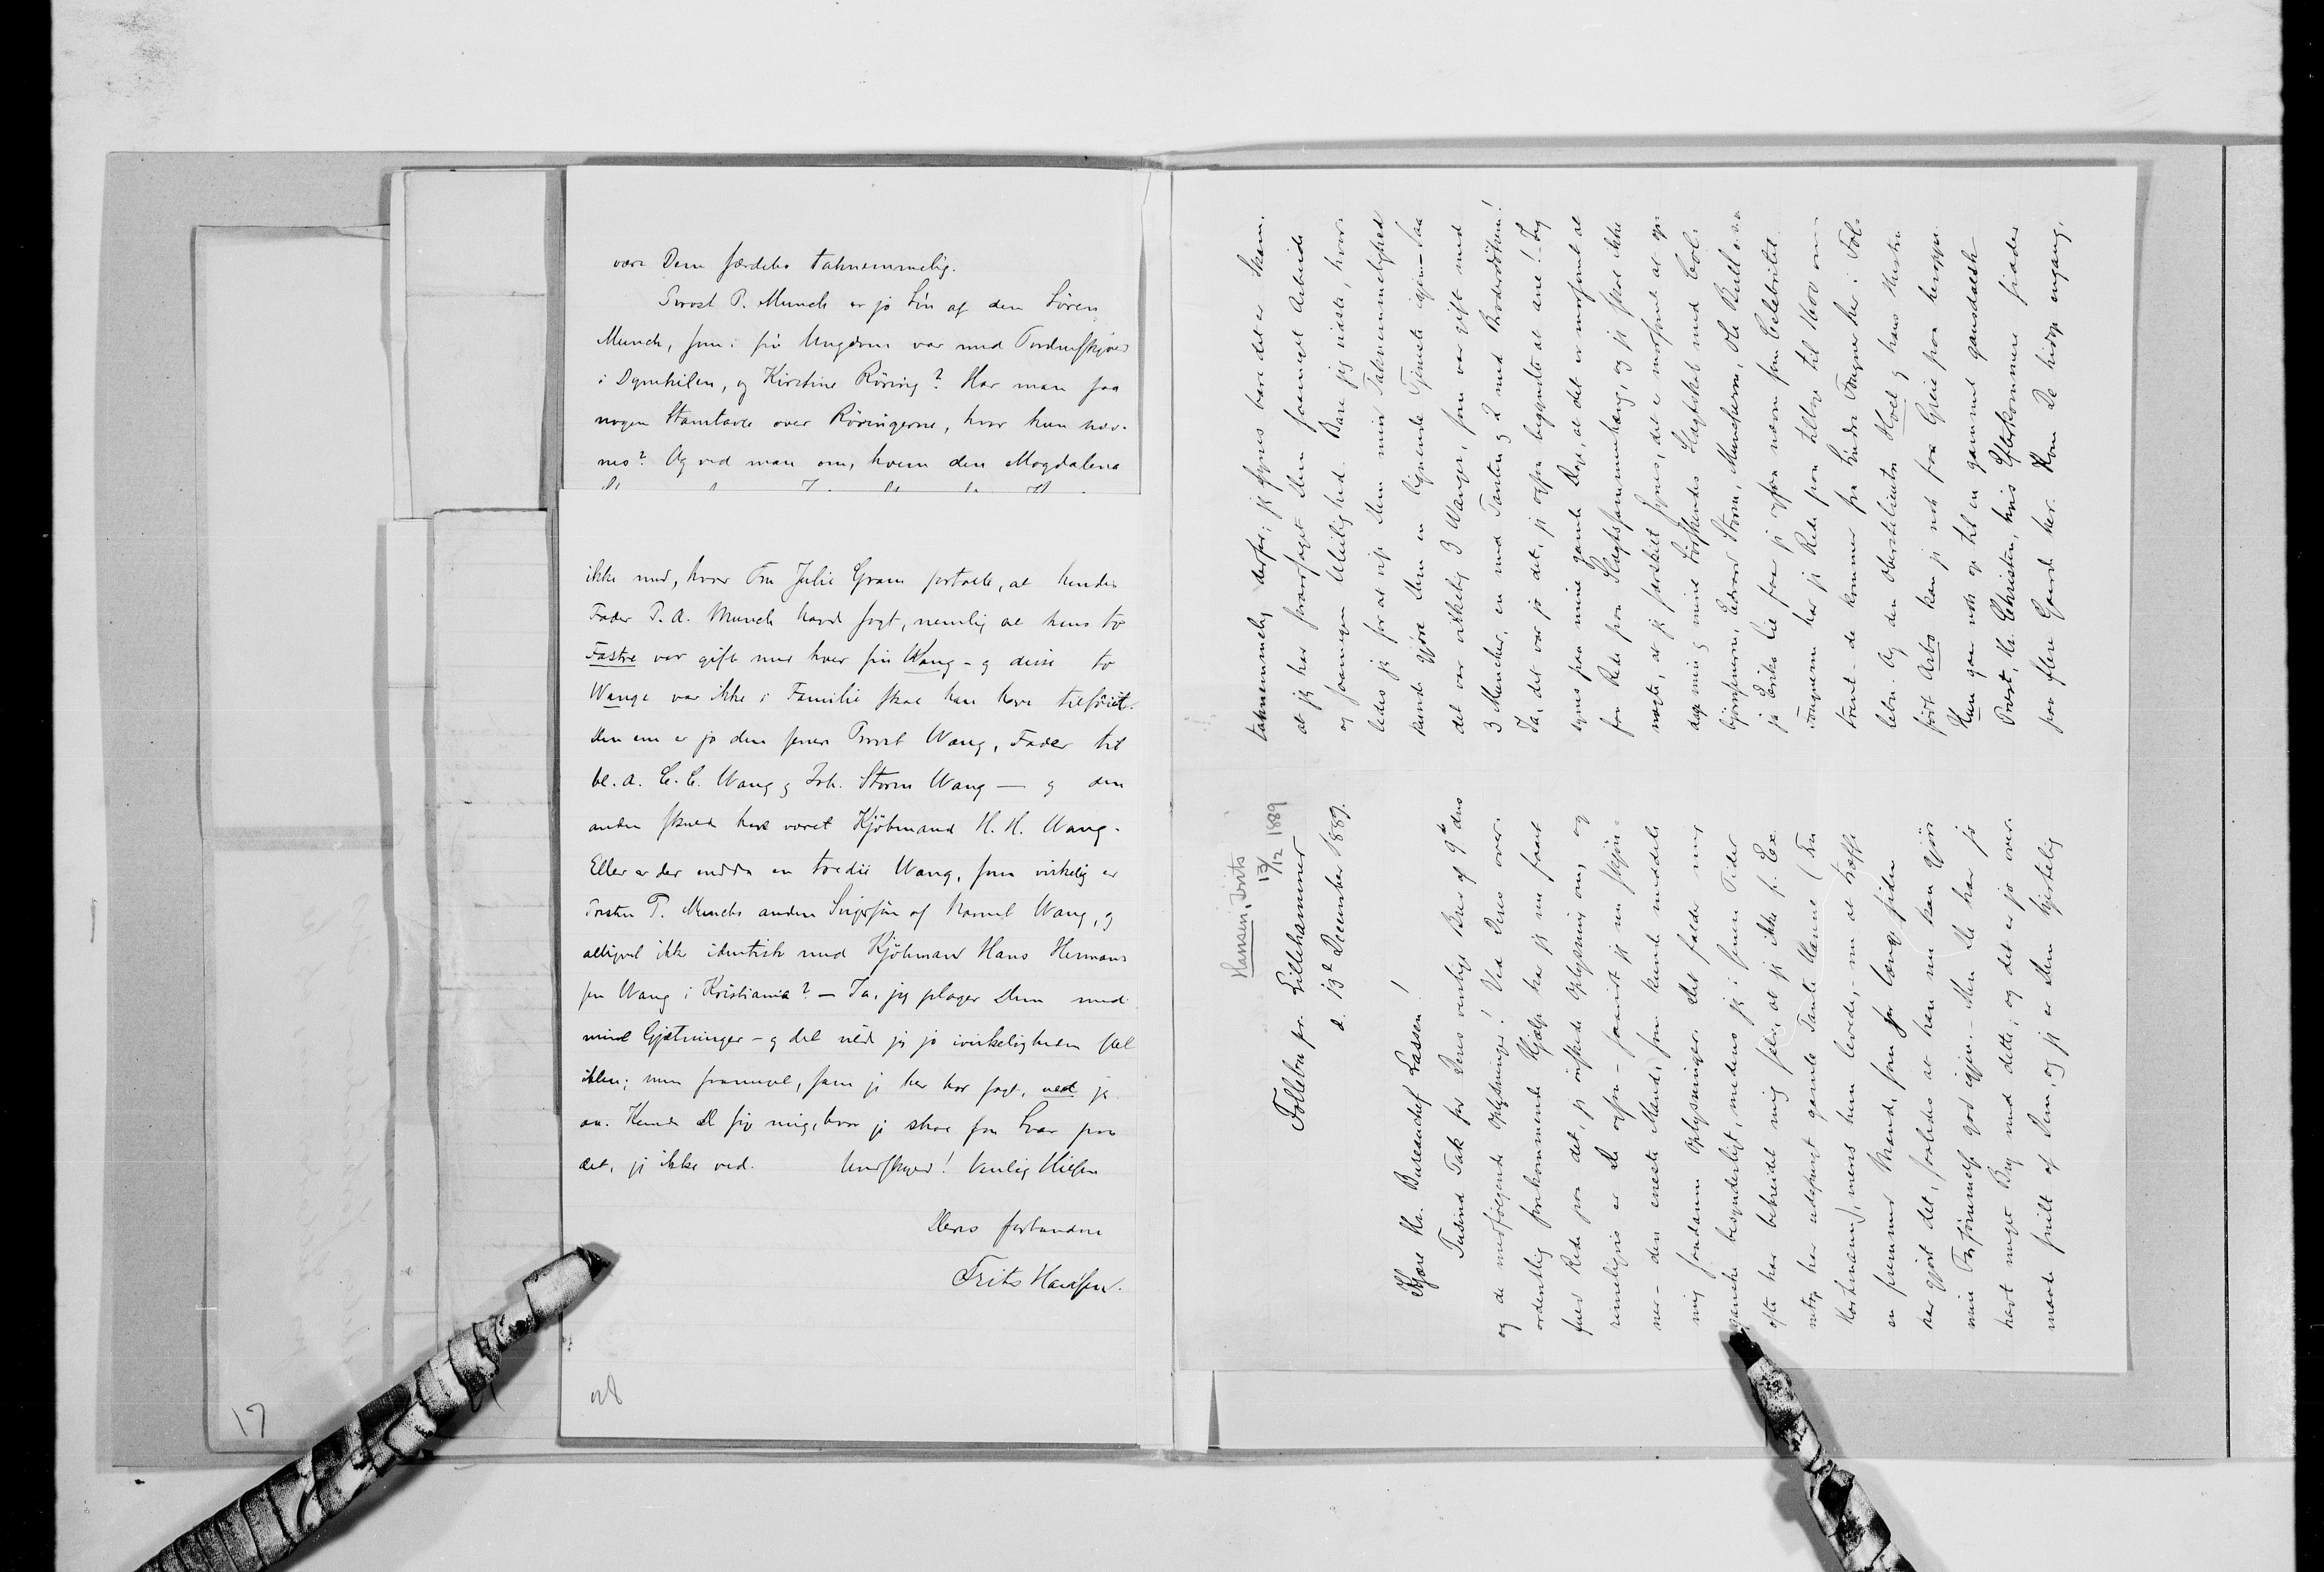 være Dem særdeles taknemmelig.
Provst P. Munch er jo Søn af den Sören
Munch, som i sin Ungdom var med Tordenskjold
i Dynekilen, og Kirstine Röring? Har man saa
nogen Stamtavle over Röringerne, hvor hun næv-
nes? Og ved man om, hvem den Magdalena
ikke med, hvor Fru Julie Gram fortalte, at hendes
Fader P. A. Munch havde sagt, nemlig at hans to
Fastre var gift med hver sin Wang - og disse to
Wange var ikke i Familie skal han have tilföiet.
Den ene er jo den senere Provst Wang, Fader til
bl. a. C. C. Wang og Joh. Storm Wang — og den
anden skulde have været Kjöbmand H. H. Wang.
Eller er der endda en tredie Wang, som virkelig er
Provsten P. Munchs anden Svigersön af Navnet Wang, og
alligevel ikke identisk med Kjöbmand Hans Herman-
sen Wang i Kristiania? — Ja, jeg plager Dem med
mine Gjætninger - og det vilde jeg jo i virkeligheden slet
ikke; men saameget, som jeg her har sagt, ved jeg
nu. Kunde De sige mig, hvor jeg skal faa Svar paa
det, jeg ikke ved. Undskyld! Venlig Hilsen
Deres forbundne
Frits Hansen.
28
17
Hansen, Frits
13/12 1889
Follebu pr. Lillehammer
d. 13de December 1889.
Kjære Hr. Bureauchef Lassen!
Tusind Tak for Deres venlige Brev af 9de dns
og de medfölgende Oplysninger! Ved Deres over-
ordentlig forekommende Hjælp har jeg nu faaet
fuld Rede paa det, jeg önskede Oplysning om, og
rimeligvis er De ogsaa - saavidt jeg nu skjön-
ner - den eneste Mand, som kunde meddele
mig saadanne Oplysninger. Det falder mig
ganske besynderligt, medens jeg i senere Tider
ofte har bebreidet mig selv, at jeg ikke f. Ex.
netop har udspurgt gamle Tante Hanne (Fru
Hortmann), mens hun levede, - nu at træffe
en fremmed Mand, som for længe siden
har gjort det, saaledes at han nu kan gjöre
min Forsömmelse god igjen. - Men De har jo
havt meget Bry med dette, og det er jo over-
maade snilt af Dem, og jeg er Dem hjertelig
taknemmelig derfor; jeg synes bare det er Skam,
at jeg har foraarsaget Dem saameget Arbeide
og saamegen Uleilighed. Bare jeg vidste, hvor-
ledes jeg for at vise Dem min Taknemmelighed
kunde gjöre Dem en lignende Tjeneste igjen. - Saa
det var virkelig 3 Wanger, som var gift med
3 Muncher, en med Tanten og 2 med Broderdötrene!
Ja, det var jo det, jeg ogsaa begyndte at ane! - Jeg
synes paa mine gamle Dage, at det er morsomt at
faa Rede paa Slægtssammenhæng, og jeg skal ikke
nægte, at jeg særskilt synes, det er morsomt at op-
dage min og mine Södskendes Slægtskab med Col-
björnsenerne, Edvard Storm, Muncherne, Ole Bull o.s.v.
jeg Erika lil for jeg ogsaa nævne som Celebritet.
Fougnerne har jeg Rede paa tilbage til 1600 om-
trent - de kommer fra Söndre Fougner her i Fol-
lebu. Og den Oberstlieutn. Hoel og hans Hustru
født Arbo kan jeg nok faa Greie paa heroppe.
Hun gav nok op til en gammel gausdalsk
Prest, Hr. Christen, hvis Efterkommere sidder
paa flere Gaarde her. Kom De hidop engang,